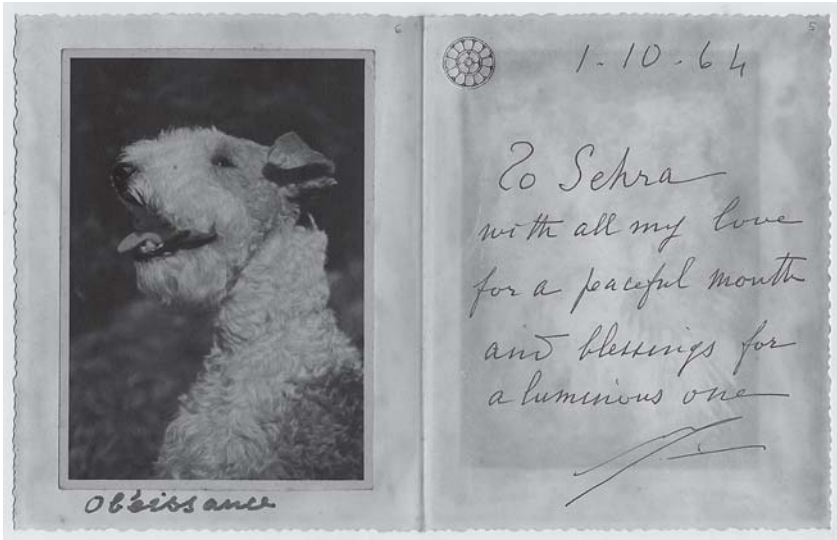 6
Obéissance
5
1.10.64
To Sehra
with all my love
for a peaceful month
and blessings for
a luminous one